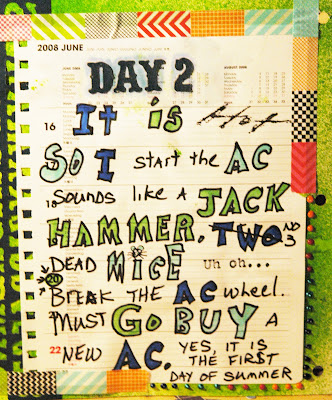 2008 JUNE
DAY 2
16 It is
SO I start the AC
SOUNDS LIKE A JACK
18
HAMMER. TWO AND 3
DEAD MICE Uh oh...
20
BREAK THE AC wheel.
MUST GO BUY A
22 NEW AC. YES IT IS
THE FIRST
DAY OF SUMMER